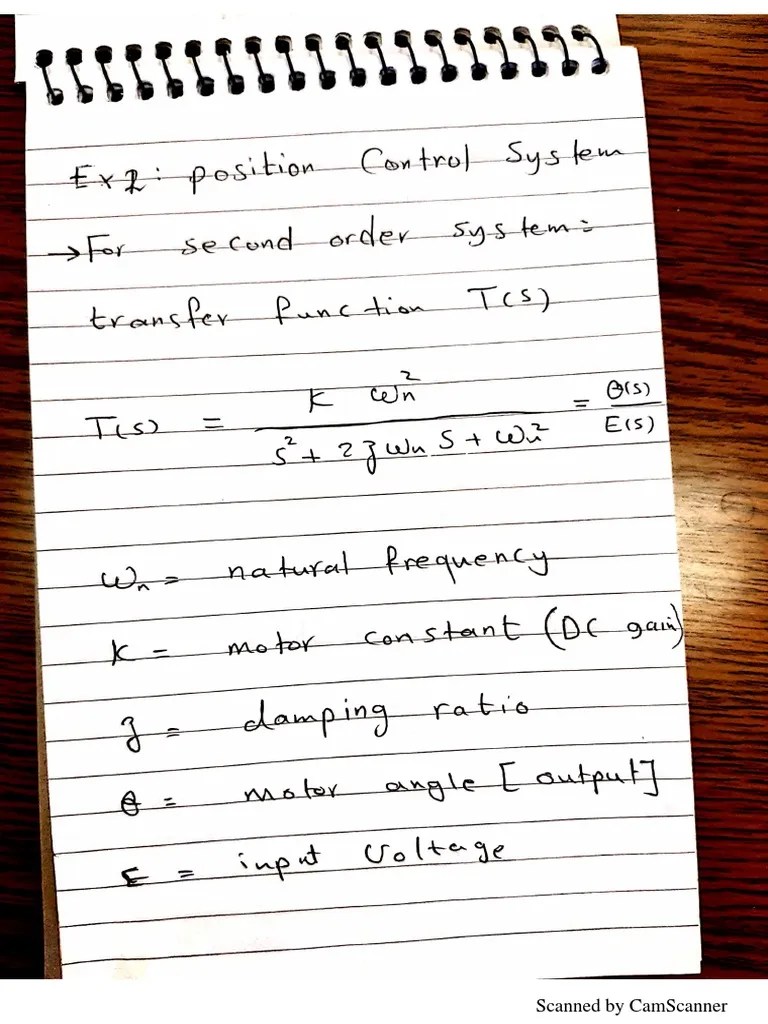 Ex2: position Control System
→ For second order system:
transfer function T(s)
T(s) = K ωn² / (s² + 2ζωn s + ωn²) = θ(s) / E(s)
ωn = natural frequency
K = motor constant (DC gain)
ζ = damping ratio
θ = motor angle [output]
E = input voltage
Scanned by CamScanner